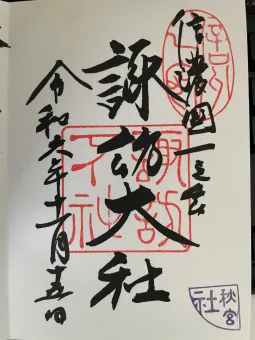 信濃國一之宮
諏訪大社
諏訪
下社
令和六年十一月十五日
秋宮
社